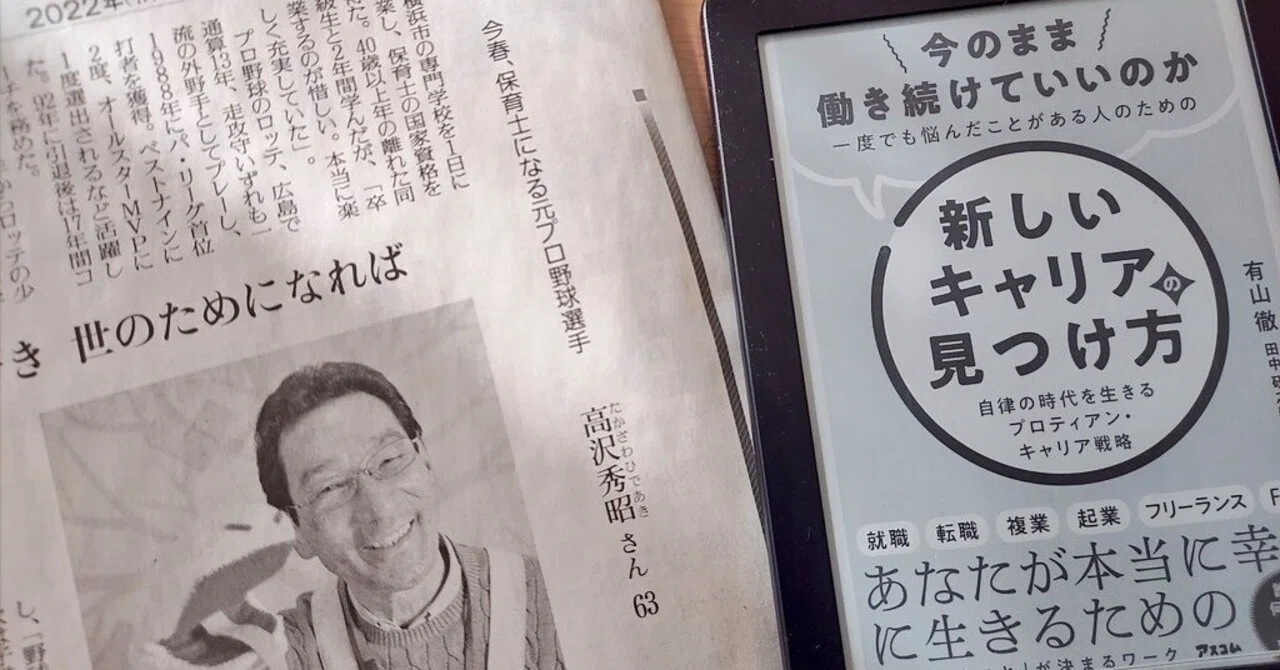 2022年
今春、保育士になる元プロ野球選手
高沢秀昭さん 63
たかざわひであき
横浜市の専門学校を1日に
業し、保育士の国家資格を
た。40歳以上年の離れた同
級生と2年間学んだが、「卒
業するのが惜しい。本当に楽
しく充実していた」。
プロ野球のロッテ、広島で
通算13年、走攻守いずれも一
流の外野手としてプレーし、
1988年にパ・リーグ首位
打者を獲得。ベストナインに
2度、オールスターMVPに
1度選出されるなど活躍し
た。92年に引退後は17年間コ
ーチを務めた。
ロッテの少
き 世のためになれば
し、「野
今のまま
働き続けていいのか
一度でも悩んだことがある人のための
新しい
キャリアの
見つけ方
自律の時代を生きる
プロティアン・
キャリア戦略
有山徹
田中研之
就職 転職 複業 起業 フリーランス
あなたが本当に幸
に生きるための
が決まるワーク
アスコム